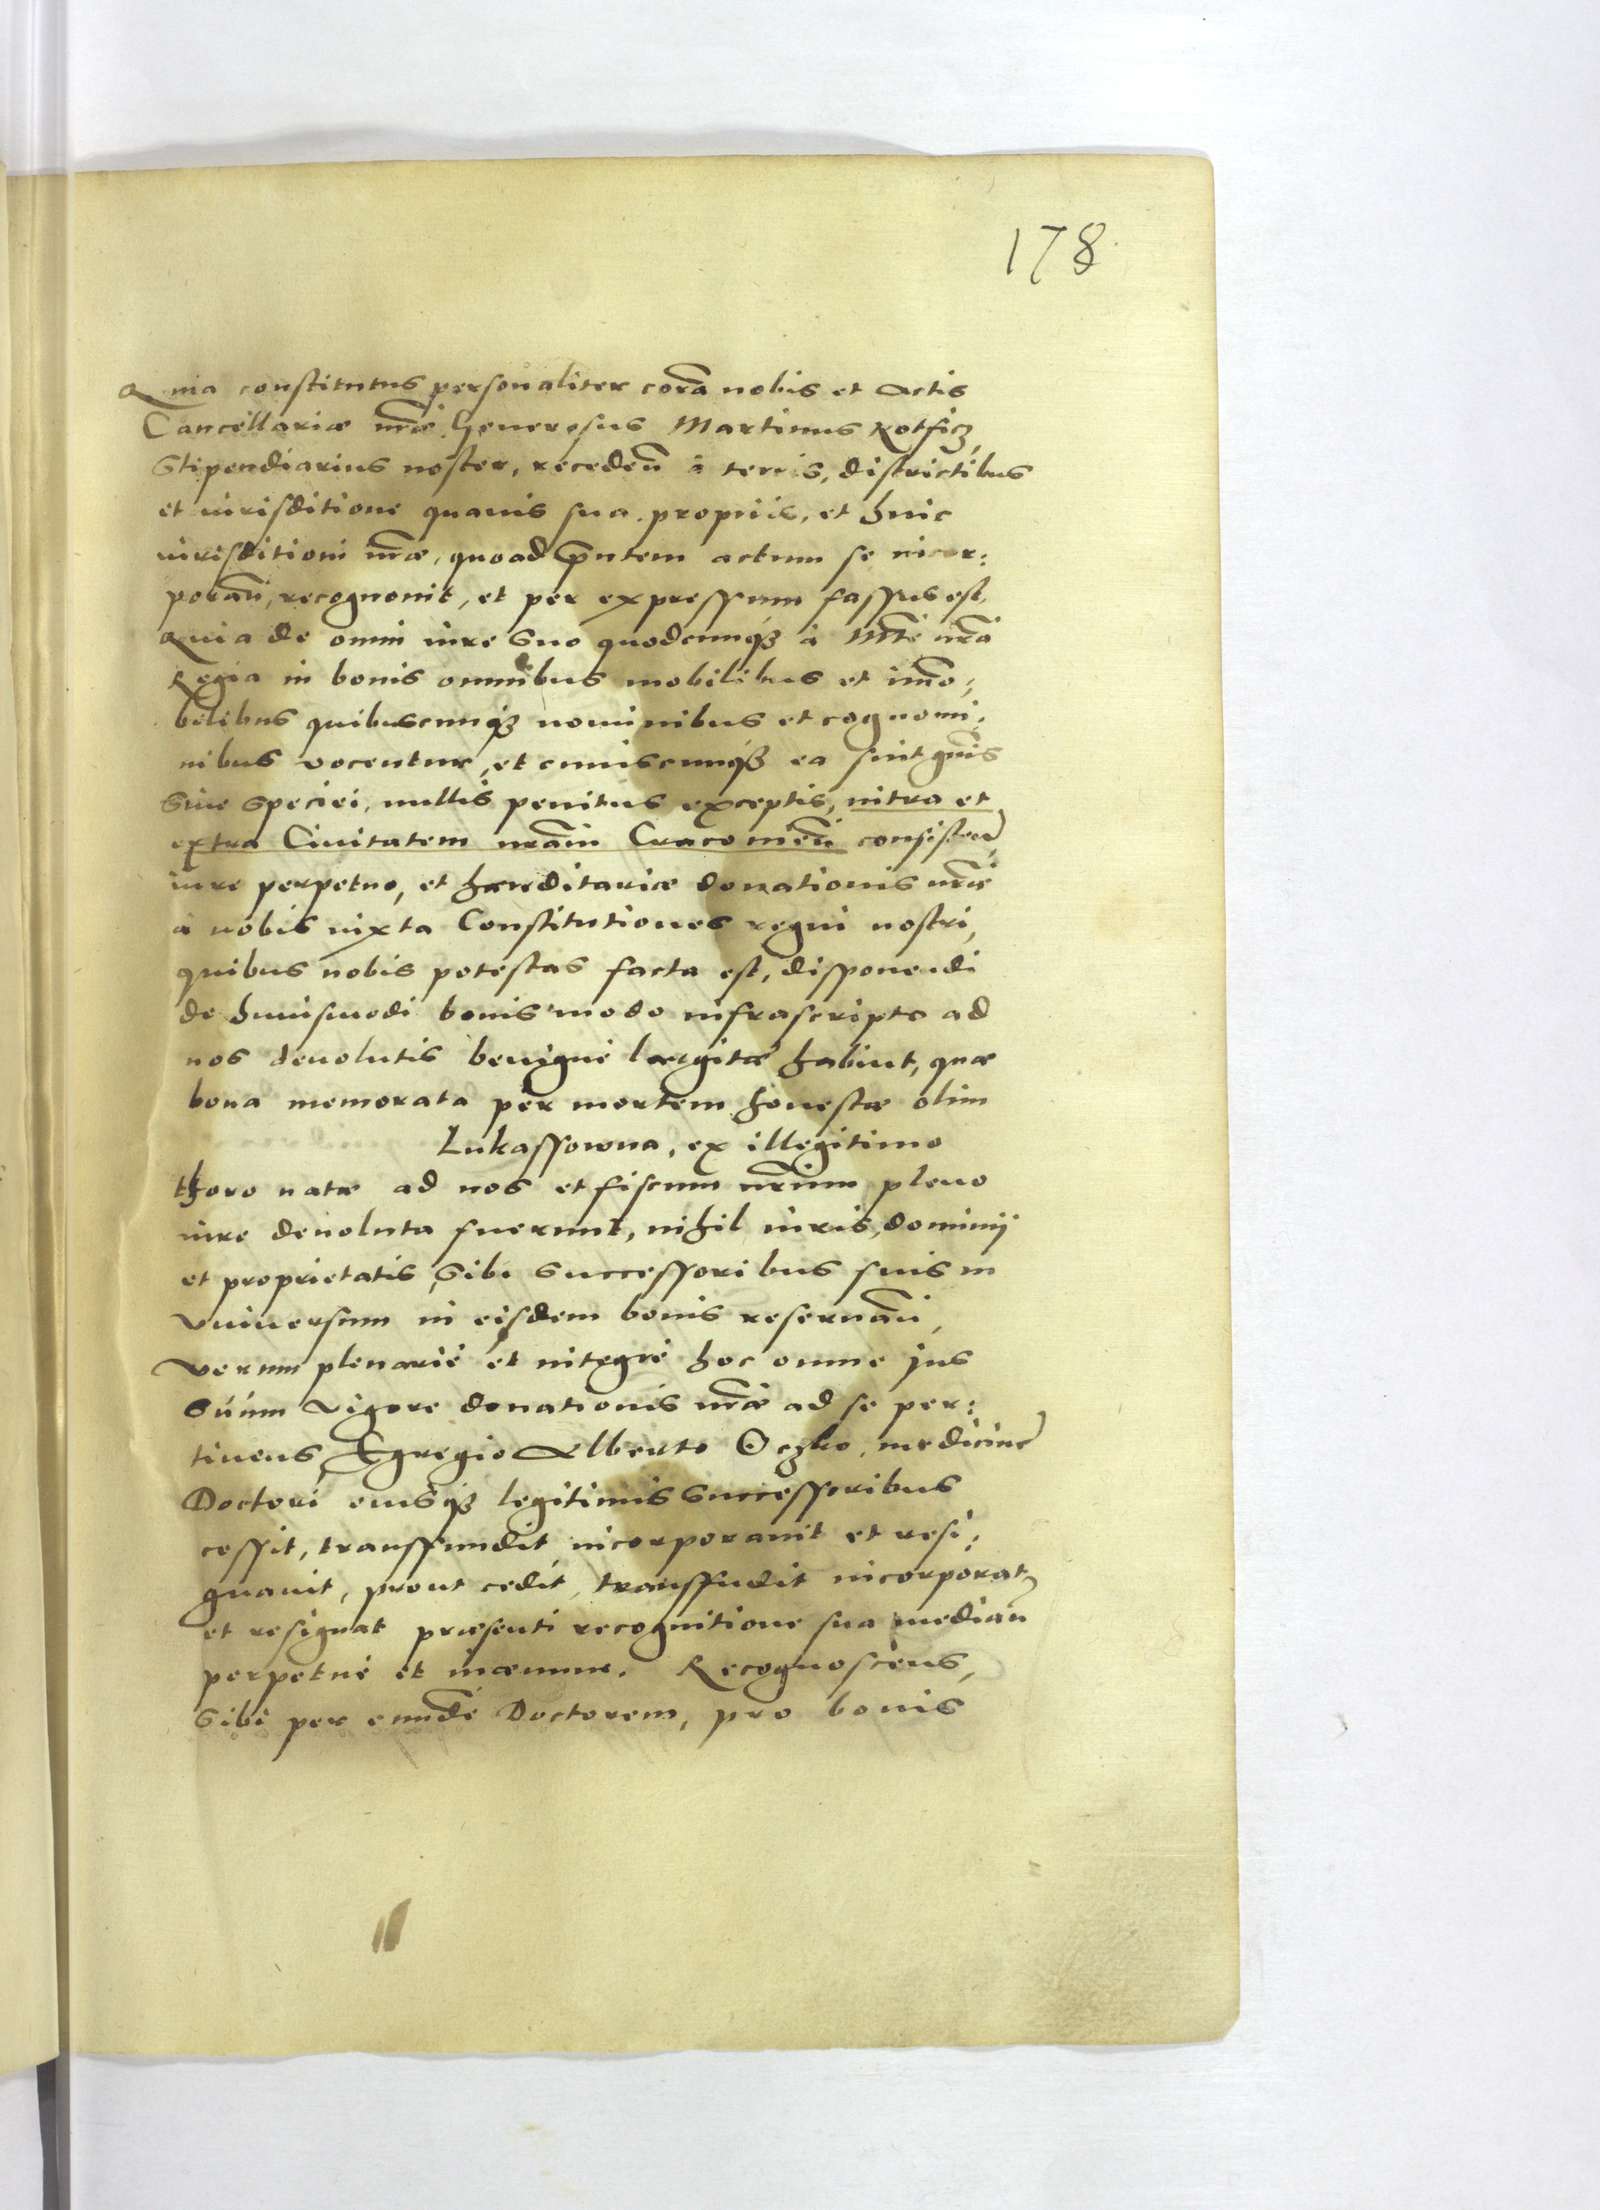 178
Quia constitutus personaliter corā nobis et Actis
Cancellariæ nr̄æ Generosus Martinus Rotficz,
Stipendiarius noster, recedeñ à terris, districtibus
et iurisditione quauis sua propriis, et huic
iurisditioni nr̄æ, quoad p̄ntem actum se incor:
porañ, recognouit, et per expressum fassus est.
Quia de omni iure suo quodcunqȝ à Mtē nr̄a
Regia in bonis omnibus mobilibus et im̄o:
bilibus quibuscunqȝ nominibus et cognomi:
nibus vocentur, et cuiuscunqȝ ea sint gñis
siue speciei, nullis penitus exceptis, intra et
extra Ciuitatem nr̄am Cracouieñ consisteñ
iure perpetuo, et hæreditariæ donationis nr̄æ
à nobis iuxta Constitutiones regni nostri,
quibus nobis potestas facta est, disponendi
de huiusmodi bonis modo infrascripto ad
nos deuolutis benigne largitæ habuit, quæ
bona memorata per mortem honestæ olim
Lukassowna, ex illegitimo
thoro natæ ad nos et fiscum nr̄um pleno
iure deuoluta fuerunt, nihil iuris, dominij
et proprietatis, sibi successoribus suis in
vniuersum in eisdem bonis reseruañ,
verum plenariè et integrè hoc omne jus
suum vigore donationis nr̄æ ad se per:
tinens, Egregio Alberto Oczko, medicinę
Doctori eiusqȝ legitimis successoribus
cessit, transfundit incorporauit et resi:
gnauit, prout cedit, transfudit incorporat,
et resignat præsenti recognitione sua mediañ
perpetuè et in æuum. Recognoscens,
sibi per eundē Doctorem, pro bonis